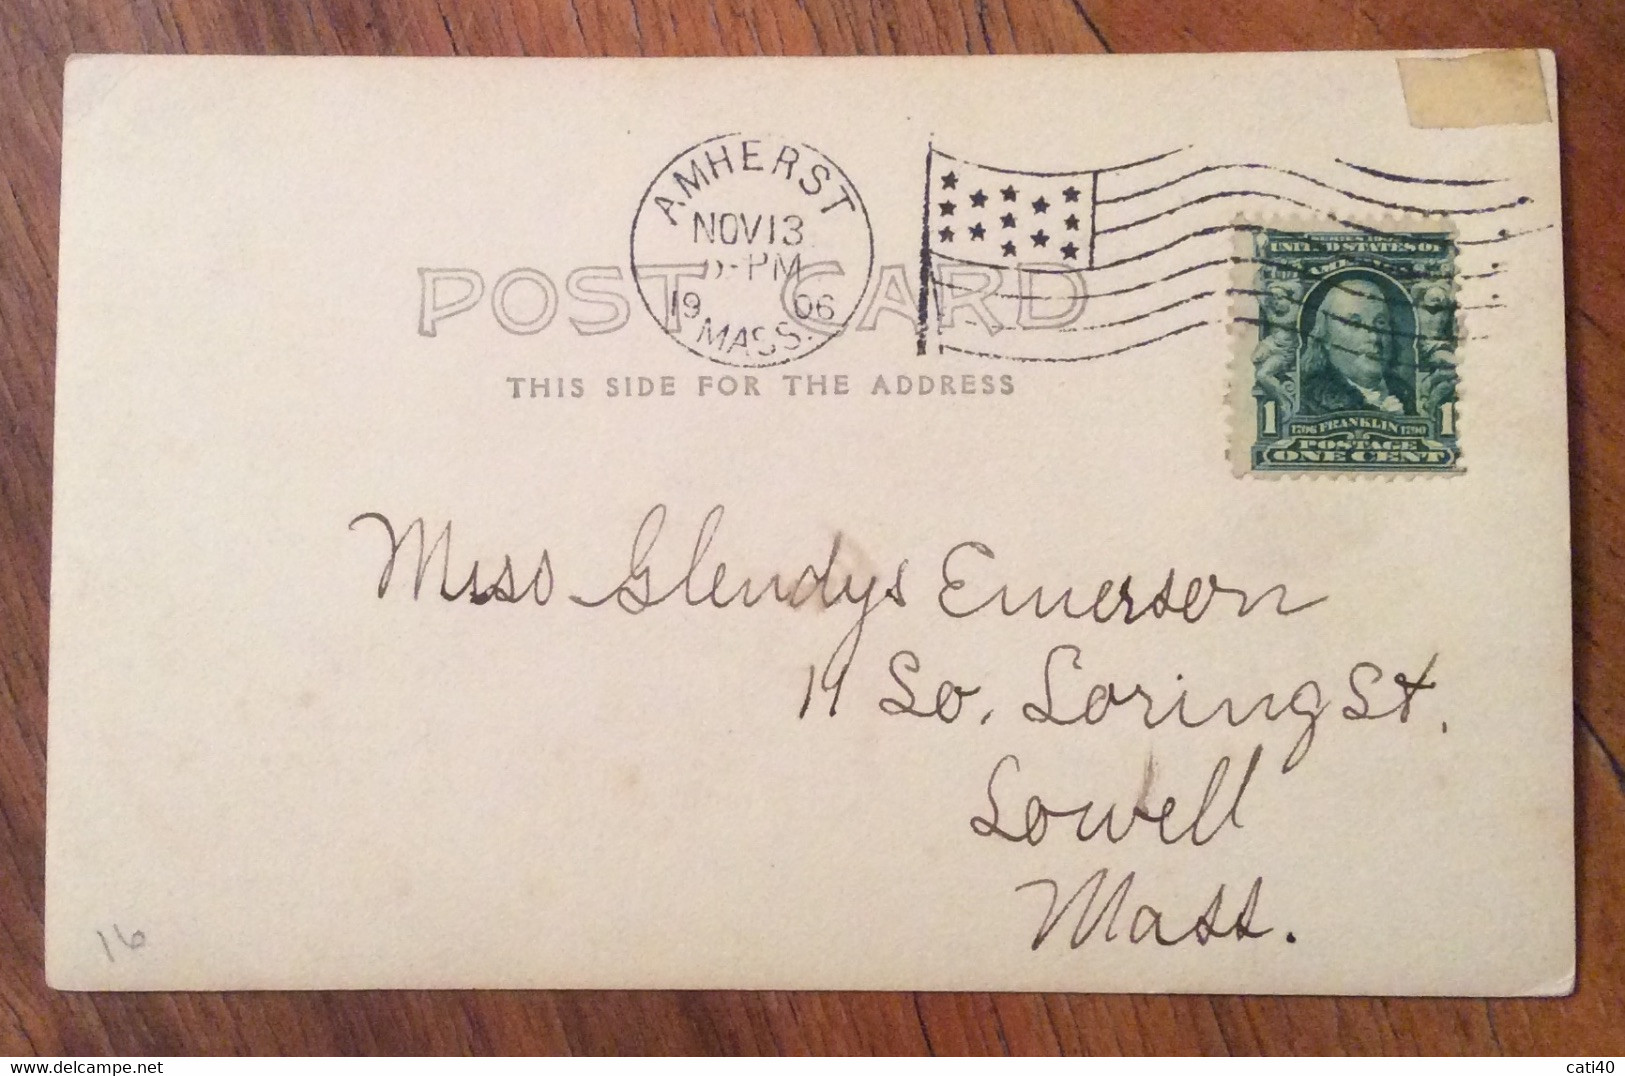 AMHERST
NOV 13
-PM
19 06
MASS.
POST CARD
THIS SIDE FOR THE ADDRESS
UNITED STATES OF
1 1
1706 FRANKLIN 1790
POSTAGE
ONE CENT
Miss Glendys Emerson
19 So. Loring St.
Lowell
Mass.
16
cati40